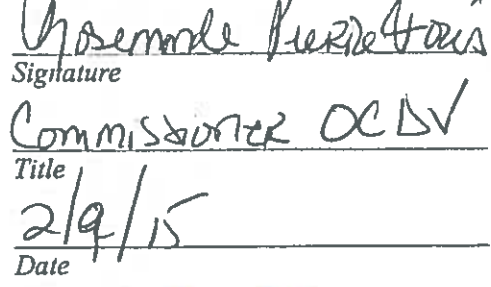 Rosemonde Pierre-Louis
Signature
Commissioner OCDV
Title
2/9/15
Date